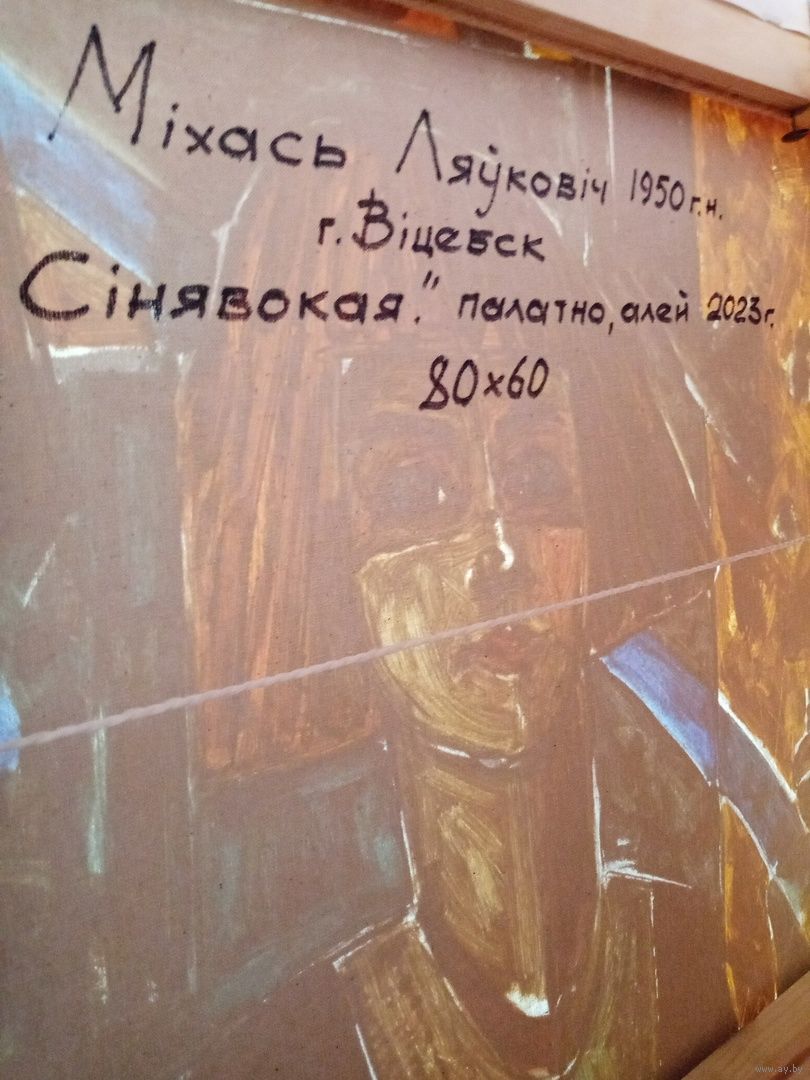 Міхась Ляўковіч 1950 г.н.
г. Віцебск
Сінявокая." палатно, алей 2023 г.
80х60
www.ay.by